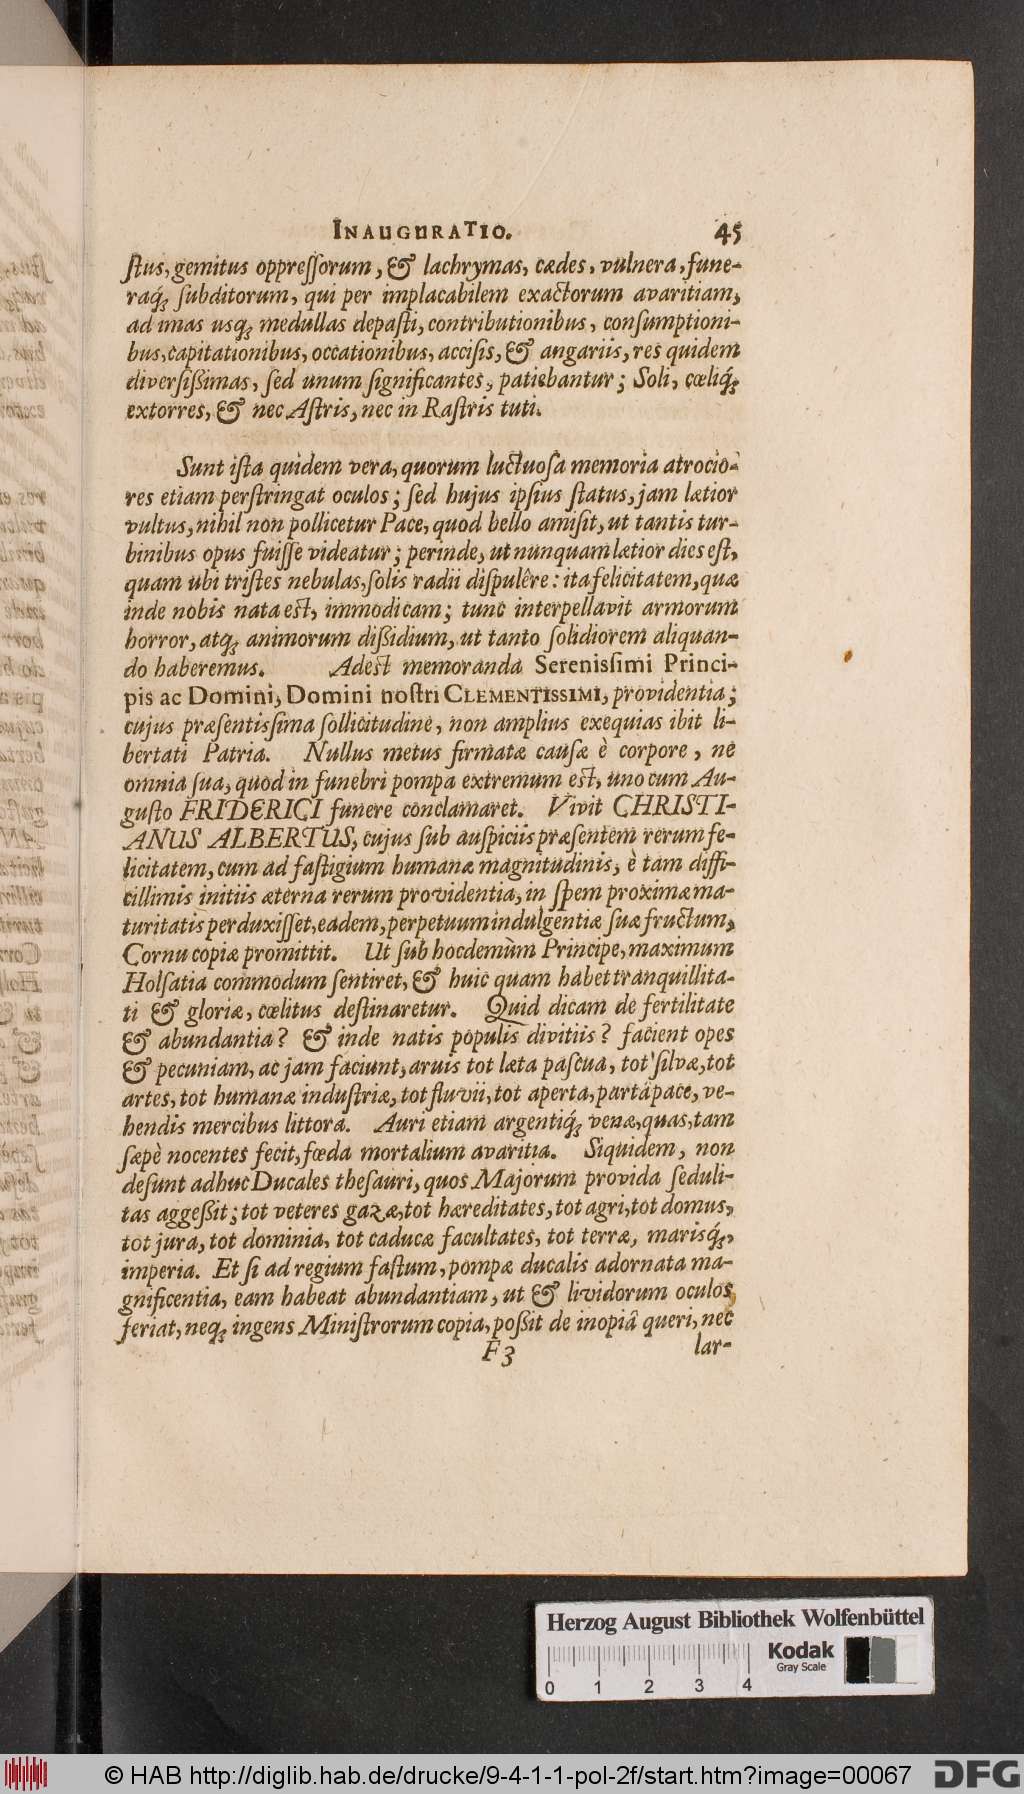 INAUGURATIO. 45
ſtus, gemitus oppreſſorum, & lachrymas, cædes, vulnera, fune-
raq́; ſubditorum, qui per implacabilem exactorum avaritiam,
ad imas usq; medullas depaſti, contributionibus, conſumptioni-
bus, capitationibus, occationibus, acciſis, & angariis, res quidem
diverſiſſimas, ſed unum ſignificantes, patiebantur; Soli, cœliq́;
extorres, & nec Aſtris, nec in Raſtris tuti.
Sunt iſta quidem vera, quorum luctuoſa memoria atrocio-
res etiam perſtringat oculos; ſed hujus ipſius ſtatus, jam lætior
vultus, nihil non pollicetur Pace, quod bello amiſit, ut tantis tur-
binibus opus fuiſſe videatur; perinde, ut nunquam lætior dies eſt,
quam ubi triſtes nebulas, ſolis radii diſpulêre: ita felicitatem, quæ
inde nobis nata eſt, immodicam; tunc interpellavit armorum
horror, atq; animorum diſſidium, ut tanto ſolidiorem aliquan-
do haberemus. Adeſt memoranda Serenisſimi Princi-
pis ac Domini, Domini noſtri CLEMENTISSIMI, providentia;
cujus præſentisſima ſollicitudine, non amplius exequias ibit li-
bertati Patria. Nullus metus firmatæ cauſæ è corpore, ne
omnia ſua, quod in funebri pompa extremum eſt, uno cum Au-
guſto FRIDERICI funere conclamaret. Vivit CHRISTI-
ANUS ALBERTUS, cujus ſub auſpiciis præſentem rerum fe-
licitatem, cum ad faſtigium humanæ magnitudinis, è tam diffi-
cillimis initiis æterna rerum providentia, in ſpem proximæ ma-
turitatis perduxiſſet, eadem, perpetuum indulgentiæ ſuæ fructum,
Cornu copiæ promittit. Ut ſub hoc demùm Principe, maximum
Holſatia commodum ſentiret, & huic quam habet tranquillita-
ti & gloriæ, cœlitus deſtinaretur. Quid dicam de fertilitate
& abundantia? & inde natis populis divitiis? facient opes
& pecuniam, ac jam faciunt, aruis tot læta paſcua, tot ſilvæ, tot
artes, tot humanæ induſtriæ, tot fluvii, tot aperta, parta pace, ve-
hendis mercibus littora. Auri etiam argentiq́; venæ, quas, tam
ſæpè nocentes fecit, fœda mortalium avaritia. Siquidem, non
deſunt adhuc Ducales theſauri, quos Majorum provida ſeduli-
tas aggeſſit; tot veteres gazæ, tot hæreditates, tot agri, tot domus,
tot jura, tot dominia, tot caducæ facultates, tot terræ, marisq́;,
imperia. Et ſi ad regium faſtum, pompæ ducalis adornata ma-
gnificentia, eam habeat abundantiam, ut & lividorum oculos
feriat, neq; ingens Miniſtrorum copia, poſſit de inopiâ queri, nec
F 3 lar-
Herzog August Bibliothek Wolfenbüttel
Kodak
Gray Scale
0 1 2 3 4
© HAB http://diglib.hab.de/drucke/9-4-1-1-pol-2f/start.htm?image=00067 DFG